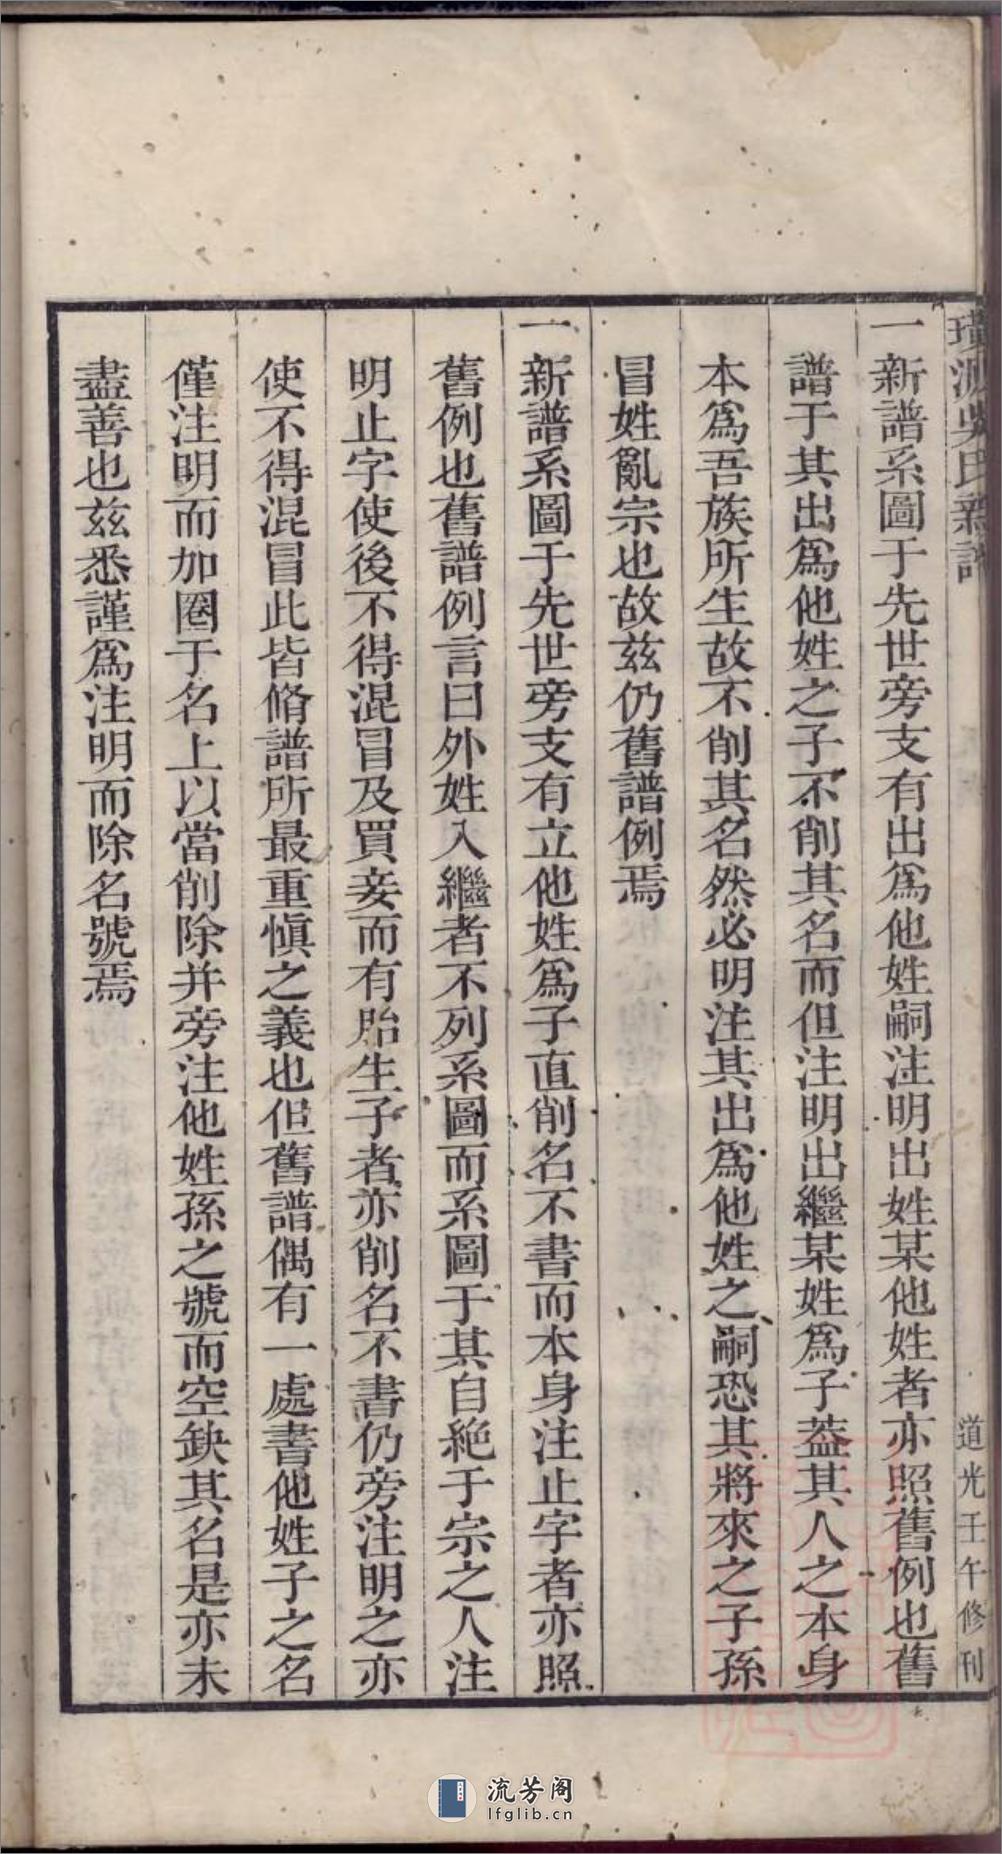 璜源吳氏新譜
道光壬午修刊
一新譜系圖于先世旁支有出爲他姓嗣注明出姓某他姓者亦照舊例也舊
譜于其出爲他姓之子不削其名而但注明出繼某姓爲子葢其人之本身
本爲吾族所生故不削其名然必明注其出爲他姓之嗣恐其將來之子孫
冒姓亂宗也故兹仍舊譜例焉
一新譜系圖于先世旁支有立他姓爲子直削名不書而本身注止字者亦照
舊例也舊譜例言曰外姓入繼者不列系圖而系圖于其自絶于宗之人注
明止字使後不得混冒及買妾而有胎生子者亦削名不書仍旁注明之亦
使不得混冒此皆脩譜所最重愼之義也但舊譜偶有一處書他姓子之名
僅注明而加圈于名上以當削除并旁注他姓孫之號而空缺其名是亦未
盡善也兹悉謹爲注明而除名號焉
流芳阁
lfglib.cn